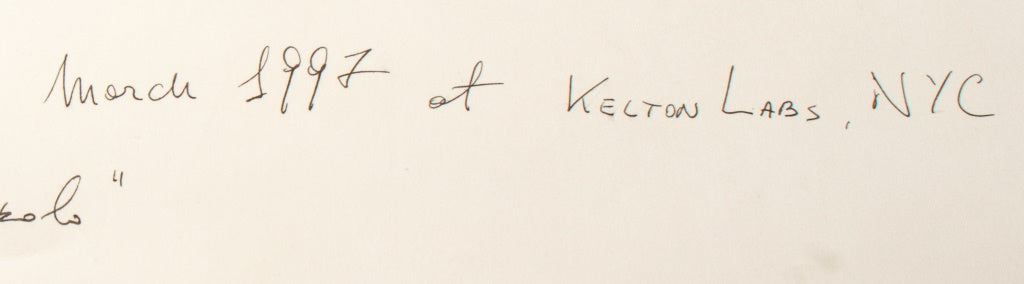 March 1997 at KELTON LABS, NYC